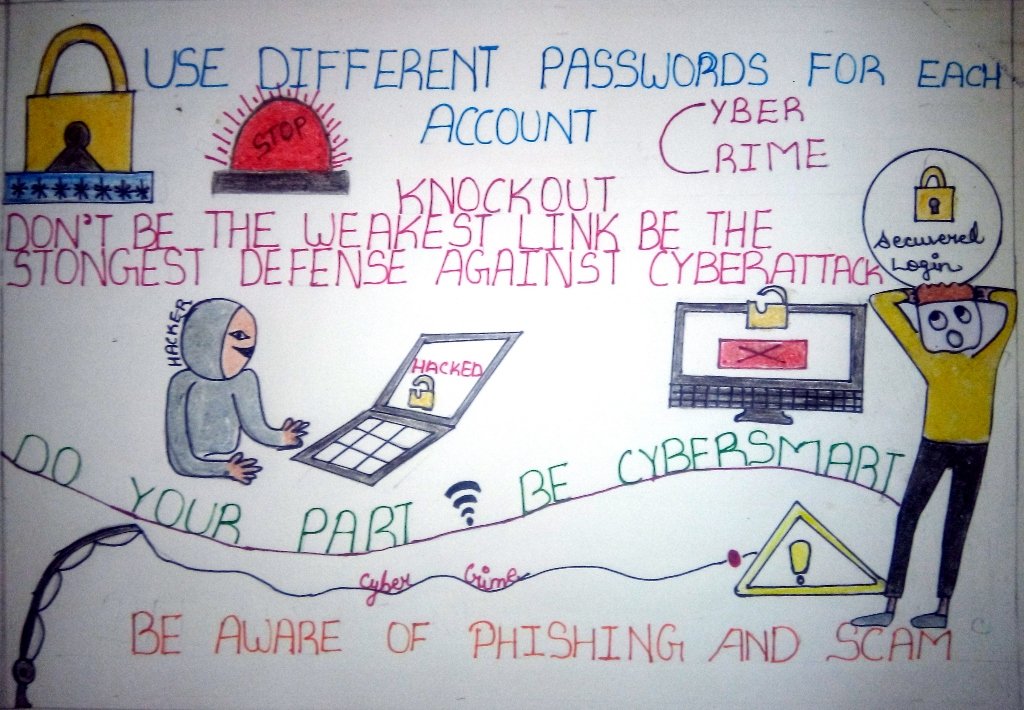 USE DIFFERENT PASSWORDS FOR EACH
ACCOUNT
CYBER
CRIME
STOP
*******
KNOCKOUT
DON'T BE THE WEAKEST LINK BE THE
STONGEST DEFENSE AGAINST CYBERATTACK
Secuvered
Login
HACKER
HACKED
DO YOUR PART BE CYBERSMART
Cyber Crime
BE AWARE OF PHISHING AND SCAM